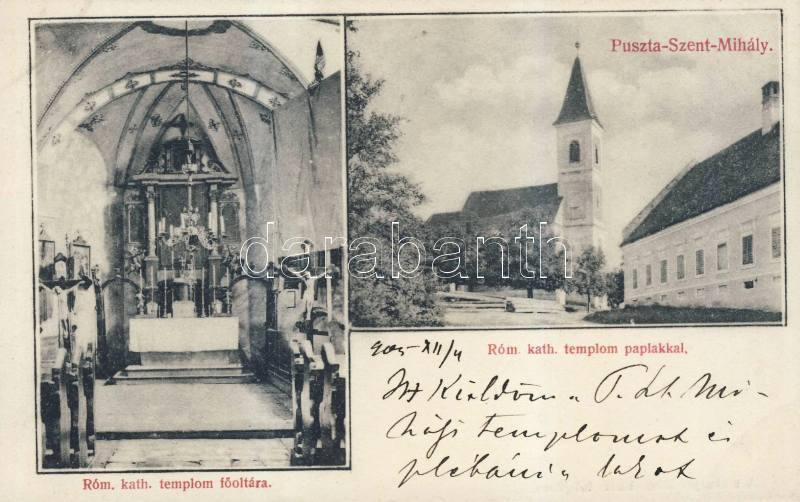 Puszta-Szent-Mihály.
darabanth
Róm. kath. templom paplakkal,
905-XII/4
Itt Küldöm a P. St Mi-
hályi templomot és
plébániai lakot
Róm. kath. templom főoltára.